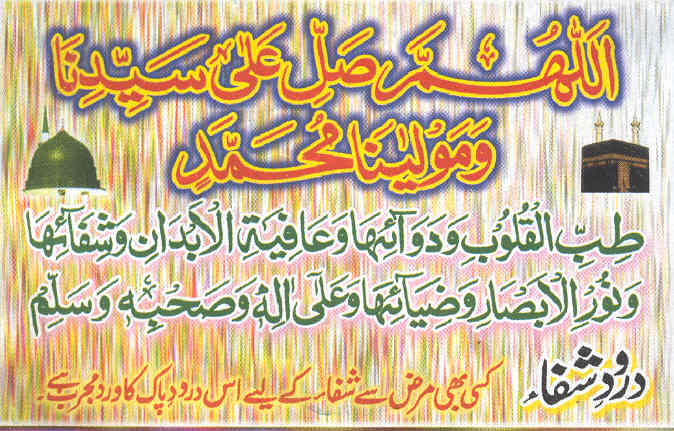 اَللّٰهُمَّ صَلِّ عَلٰى سَيِّدِنَا
وَمَوْلٰينَا مُحَمَّدٍ
طِبِّ الْقُلُوْبِ وَدَوَآئِهَا وَعَافِيَةِ الْاَبْدَانِ وَشِفَآئِهَا
وَنُوْرِ الْاَبْصَارِ وَضِيَآئِهَا وَعَلٰٓى اٰلِهٖ وَصَحْبِهٖ وَسَلِّمْ
درودِ شفاء
کسی بھی مرض سے شفاء کے لیے اس درود پاک کا ورد مجرب ہے۔